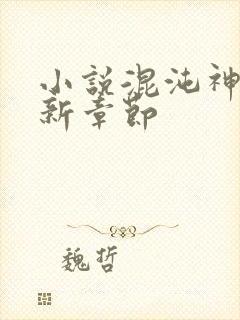 小说混沌神
新章节
魏哲